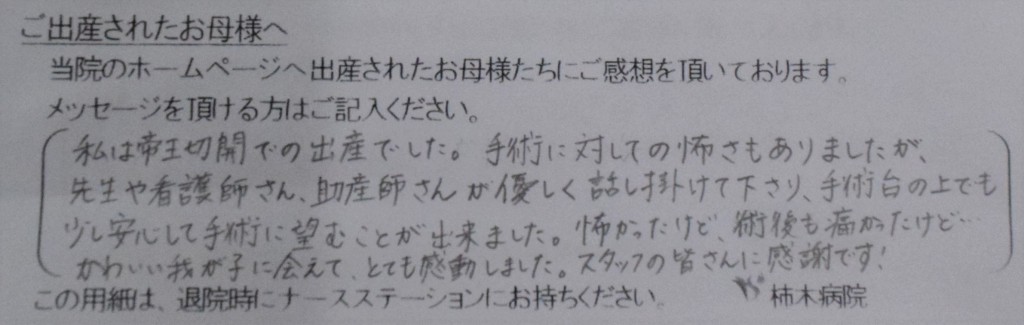 ご出産されたお母様へ
当院のホームページへ出産されたお母様たちにご感想を頂いております。
メッセージを頂ける方はご記入ください。
私は帝王切開での出産でした。手術に対しての怖さもありましたが、
先生や看護師さん、助産師さんが優しく話し掛けて下さり、手術台の上でも
少し安心して手術に望むことが出来ました。怖かったけど、術後も痛かったけど…
かわいい我が子に会えて、とても感動しました。スタッフの皆さんに感謝です!
この用紙は、退院時にナースステーションにお持ちください。 柿木病院